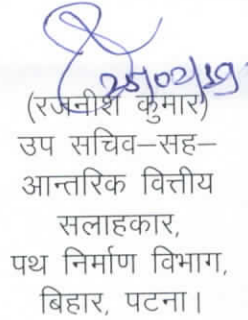 25/02/19
(रजनीश कुमार)
उप सचिव-सह-
आन्तरिक वित्तीय
सलाहकार,
पथ निर्माण विभाग,
बिहार, पटना।